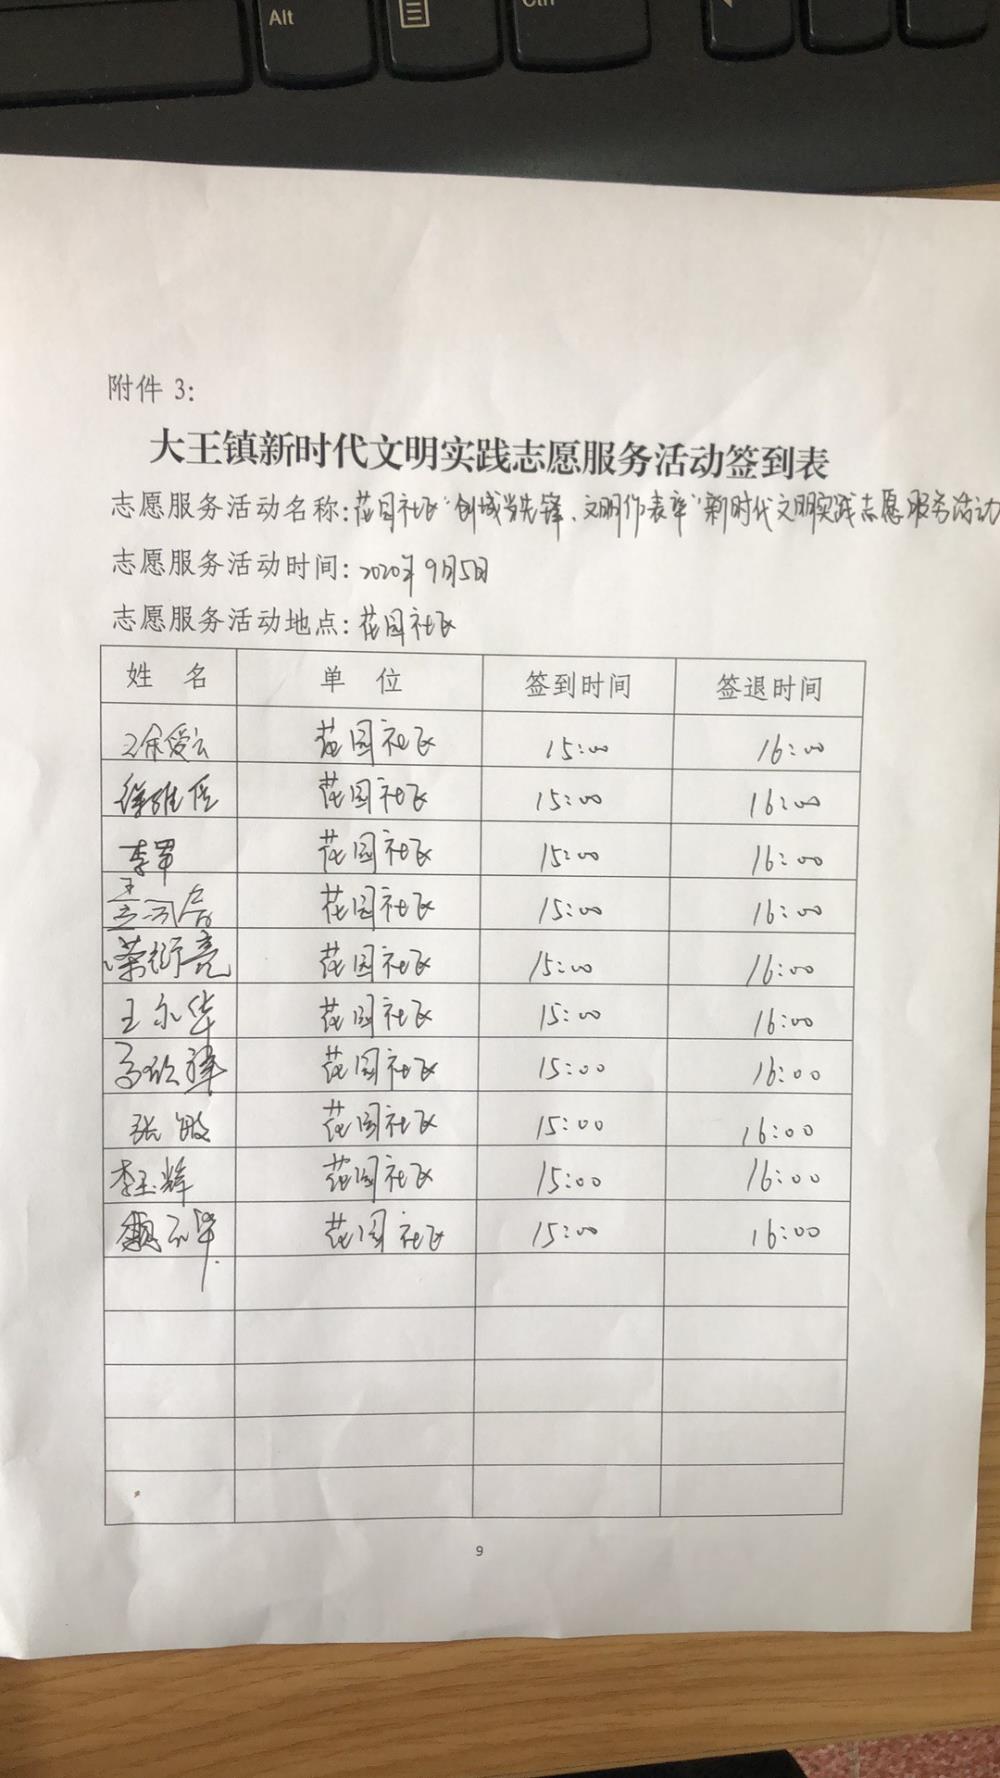 Alt
Ctrl
附件 3:
大王镇新时代文明实践志愿服务活动签到表
志愿服务活动名称:花园社区"创城当先锋、文明作表率"新时代文明实践志愿服务活动
志愿服务活动时间:2020年9月5日
志愿服务活动地点:花园社区
姓 名 单 位 签到时间 签退时间
花园社区 15:00 16:00
徐维臣 花园社区 15:00 16:00
李军 花园社区 15:00 16:00
花园社区 15:00 16:00
花园社区 15:00 16:00
王永华 花园社区 15:00 16:00
花园社区 15:00 16:00
张敏 花园社区 15:00 16:00
李玉辉 花园社区 15:00 16:00
花园社区 15:00 16:00
9